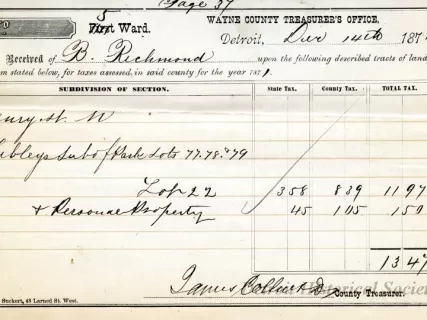 Page 37
5 First Ward. WAYNE COUNTY TREASURER'S OFFICE,
Detroit, Dec 14th 187
Received of B. Richmond upon the following described tracts of land
m stated below, for taxes assessed, in said county for the year 1871.
SUBDIVISION OF SECTION. State Tax. County Tax. TOTAL TAX.
enry St. N
ubleys Sub of Park Lots 77.78.&79
Lot 22 358 839 1197
& Personal Property 45 105 150
1347
James Collins D. County Treasurer.
Historical Socie
Suckert, 48 Larned St. West.